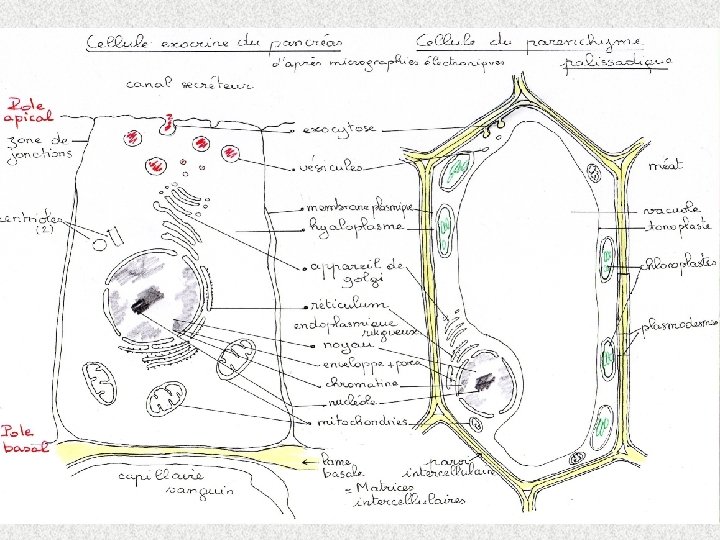 Cellule exocrine du pancréas
Cellule du parenchyme
palissadique
d'après micrographies électroniques
canal secréteur
Pole
apical
zone de
jonctions
centrioles
(2)
exocytose
vésicules
membrane plasmique
hyaloplasme
appareil de
golgi
réticulum
endoplasmique
rugueux
noyau
enveloppe + pores
chromatine
nucléole
mitochondries
méat
vacuole
tonoplaste
chloroplastes
plasmodesmes
Pole
basal
capillaire
sanguin
lame
basale
= Matrices
intercellulaires
paroi
intercellulaire